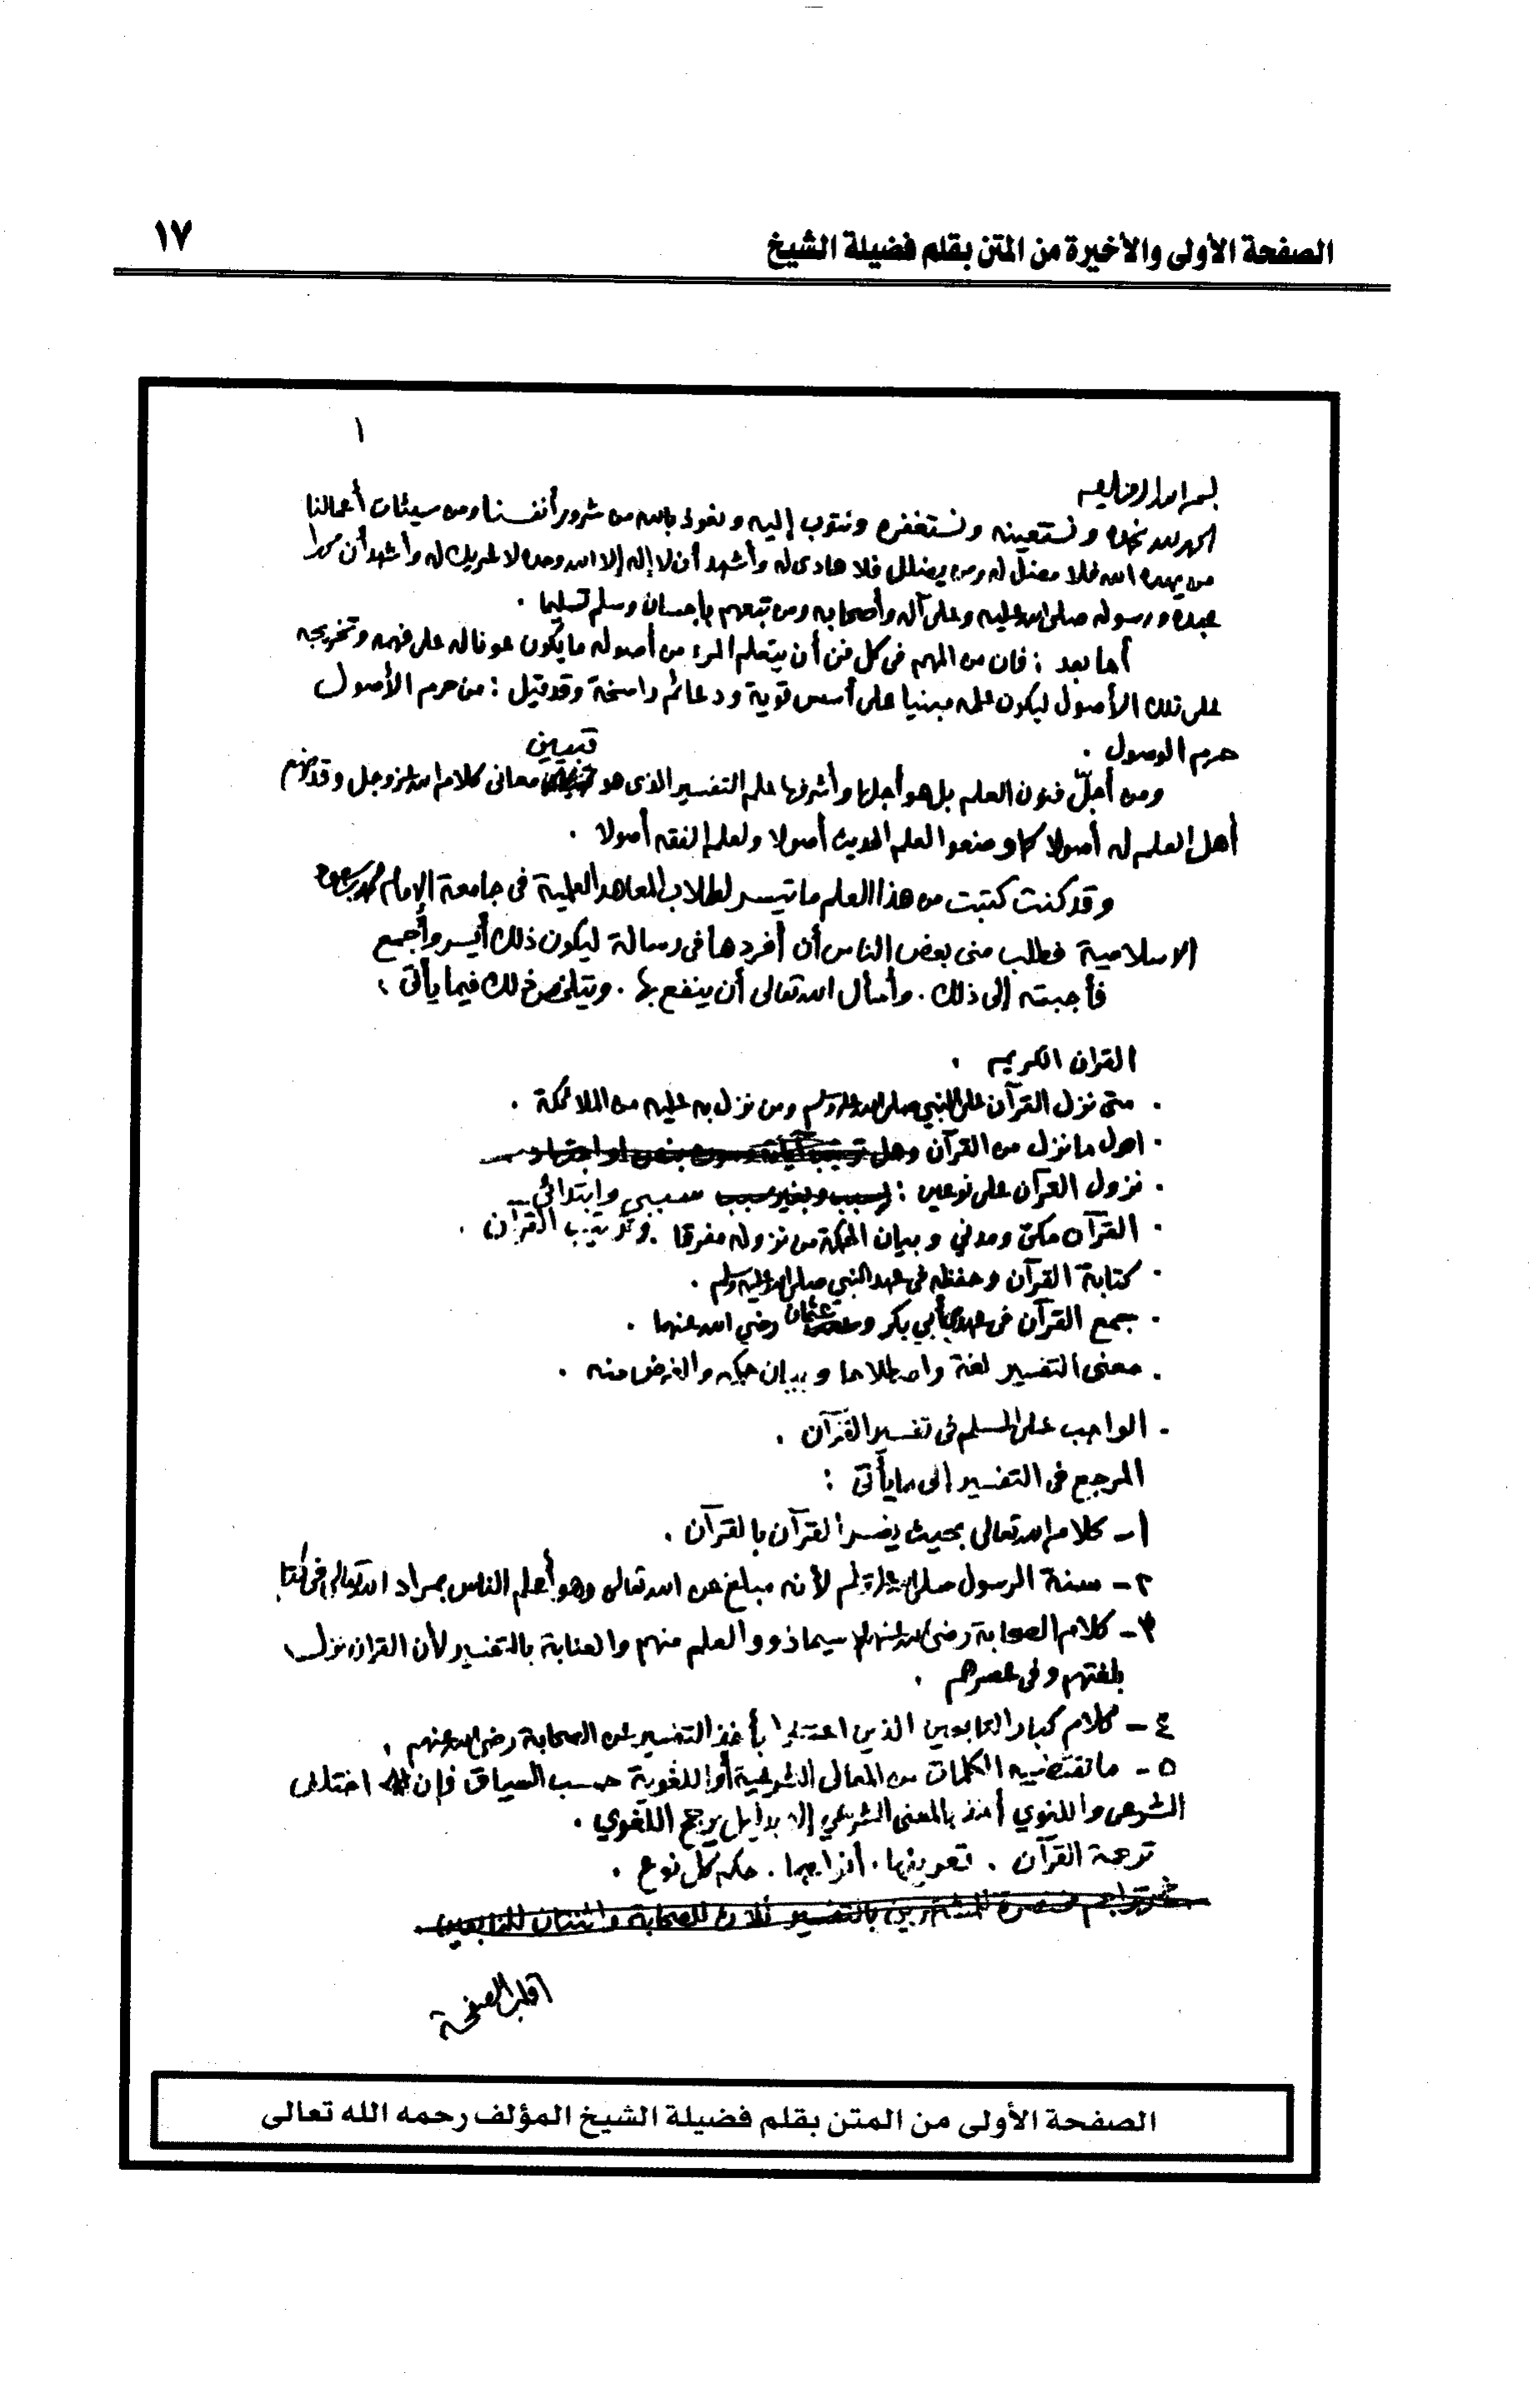 الصفحة الأولى والأخيرة من المتن بقلم فضيلة الشيخ
١٧
١
بسم الله الرحمن الرحيم
الحمد لله نحمده ونستعينه ونستغفره ونتوب إليه ونعوذ بالله من شرور أنفسنا ومن سيئات أعمالنا
من يهده الله فلا مضل له ومن يضلل فلا هادى له وأشهد أن لا إله إلا الله وحده لا شريك له وأشهد أن محمدا
عبده ورسوله صلى الله عليه وعلى آله وأصحابه ومن تبعهم بإحسان وسلم تسليما .
أما بعد : فان من المهم فى كل فن أن يتعلم المرء من أصوله ما يكون عونا له على فهمه وتخريجه
على تلك الأصول ليكون علمه مبنيا على أسس قوية ودعائم راسخة وقد قيل : من حرم الأصول
حرم الوصول .
تبيين
ومن أجلّ فنون العلم بل هو أجلها وأشرفها علم التفسير الذى هو معانى كلام الله عز وجل وقد وضع
أهل العلم له أصولا كما وضعوا لعلم الحديث أصولا ولعلم الفقه أصولا .
وقد كنت كتبت من هذا العلم ما تيسر لطلاب المعاهد العلمية فى جامعة الإمام محمد بن سعود
الاسلامية فطلب منى بعض الناس أن أفردها فى رسالة ليكون ذلك أيسر وأجمع
فأجبته إلى ذلك . وأسأل الله تعالى أن ينفع بها . ويتلخص ذلك فيما يأتى :
القرآن الكريم .
. متى نزل القرآن على النبي صلى الله عليه وسلم ومن نزل به عليه من الملائكة .
. اول ما نزل من القرآن وهل ترتيب آياته وسوره بنص او اجتهاد
. نزول القرآن على نوعين : لسبب وبغير سبب سببي وابتدائي
. القرآن مكي ومدني وبيان الحكمة من نزوله مفرقا . وترتيب القرآن .
. كتابة القرآن وحفظه فى عهد النبي صلى الله عليه وسلم .
. جمع القرآن فى عهدي أبي بكر وعثمان رضي الله عنهما .
. معنى التفسير لغة واصطلاحا وبيان حكمه والغرض منه .
. الواجب على المسلم فى تفسير القرآن .
المرجع فى التفسير إلى ما يأتى :
١ــ كلام الله تعالى بحيث يفسر القرآن بالقرآن .
٢ــ سنة الرسول صلى الله عليه وسلم لأنه مبلغ عن الله تعالى وهو أعلم الناس بمراد الله تعالى فى كتا
٣ــ كلام الصحابة رضى الله عنهم لا سيما ذوو العلم منهم والعناية بالتفسير لأن القرآن نزل
بلغتهم وفى عصرهم .
٤ــ كلام كبار التابعين الذين اعتنوا بأخذ التفسير عن الصحابة رضى الله عنهم .
٥ــ ما تقتضيه الكلمات من المعانى الشرعية أو اللغوية حسب السياق فإن اختلف
الشرعى واللغوي أخذ بالمعنى الشرعي إلا بدليل يرجح اللغوي .
ترجمة القرآن . تعريفها . أنواعها . حكم كل نوع .
تراجم مختصرة للمشتهرين بالتفسير ثلاث للصحابة واثنتان للتابعين .
اقلب الصفحة
الصفحة الأولى من المتن بقلم فضيلة الشيخ المؤلف رحمه الله تعالى